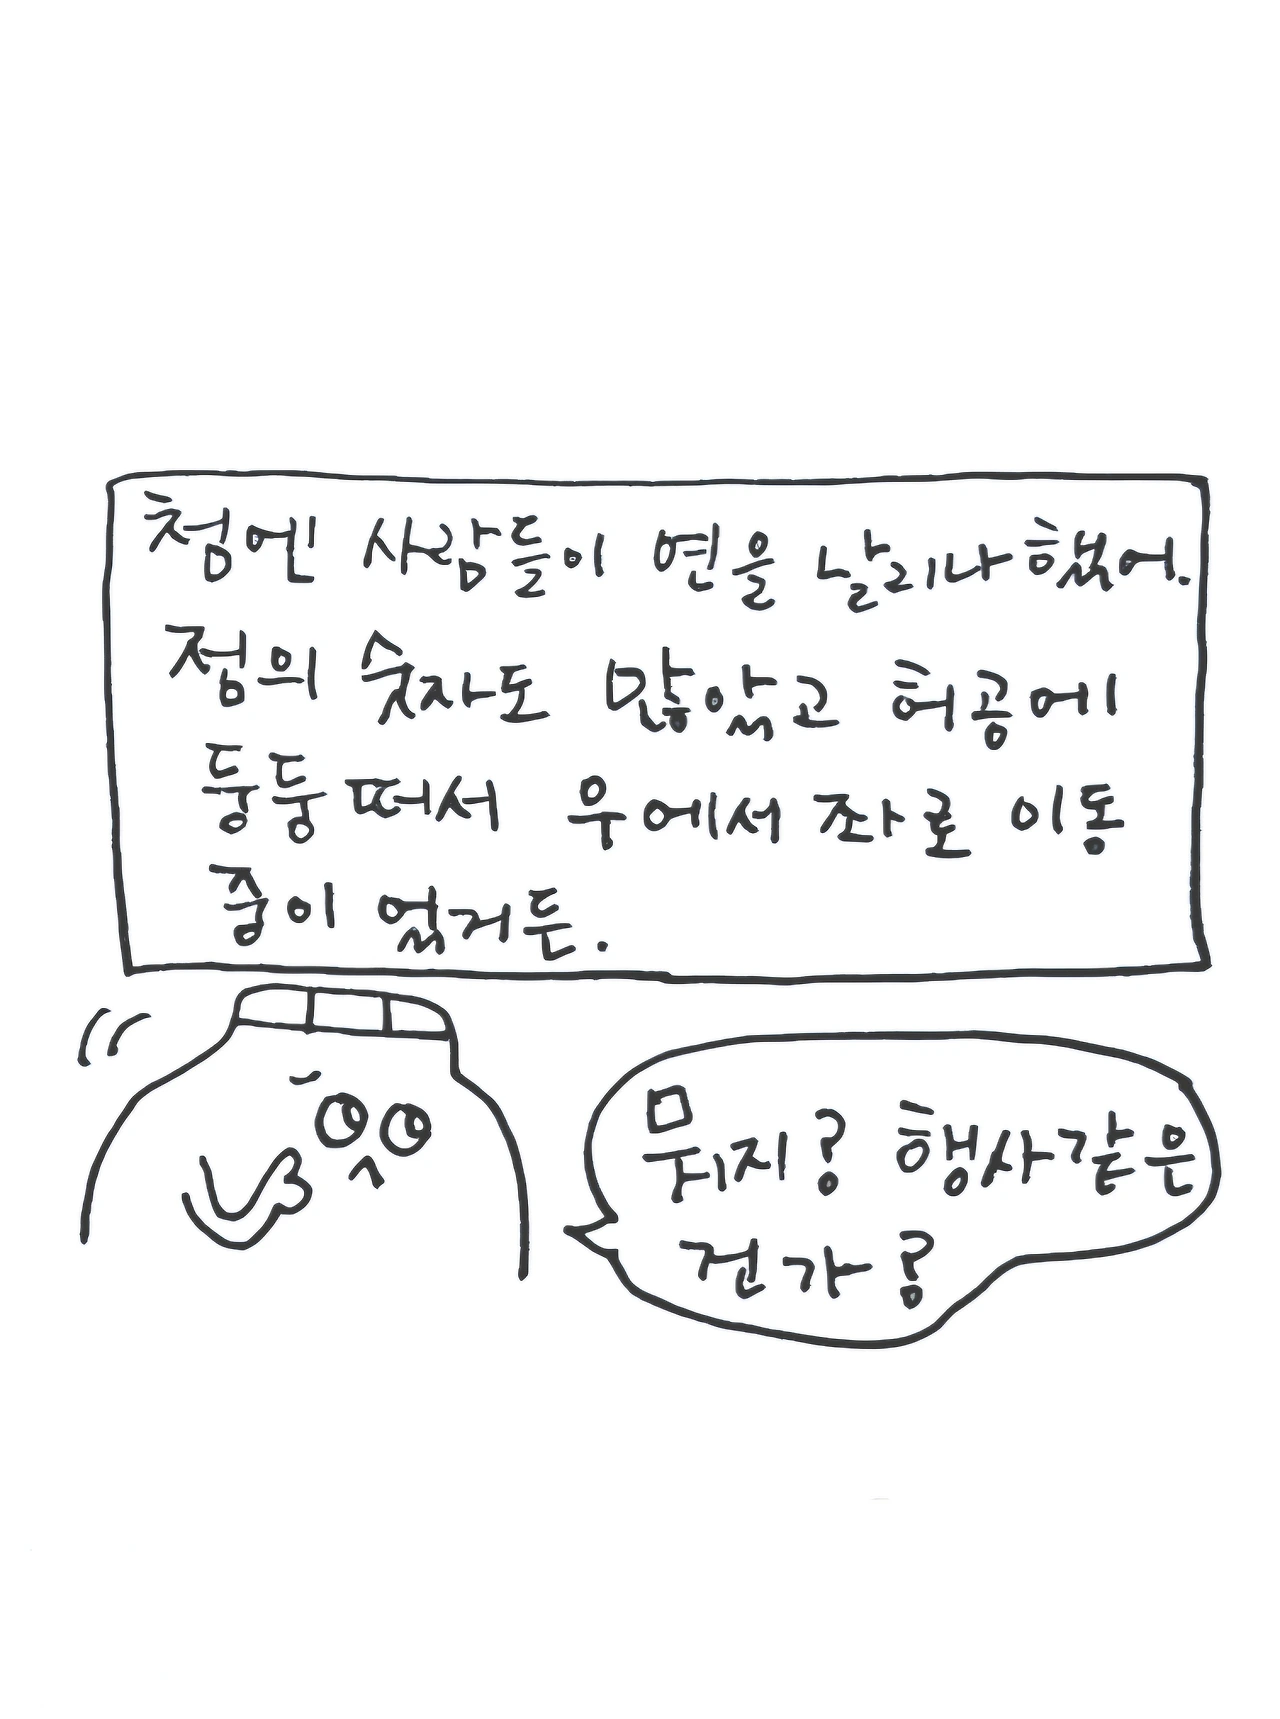 첨엔 사람들이 연을 날리나 했어.
점의 숫자도 많았고 허공에
둥둥 떠서 우에서 좌로 이동
중이 었거든.
뭐지? 행사같은
건가?